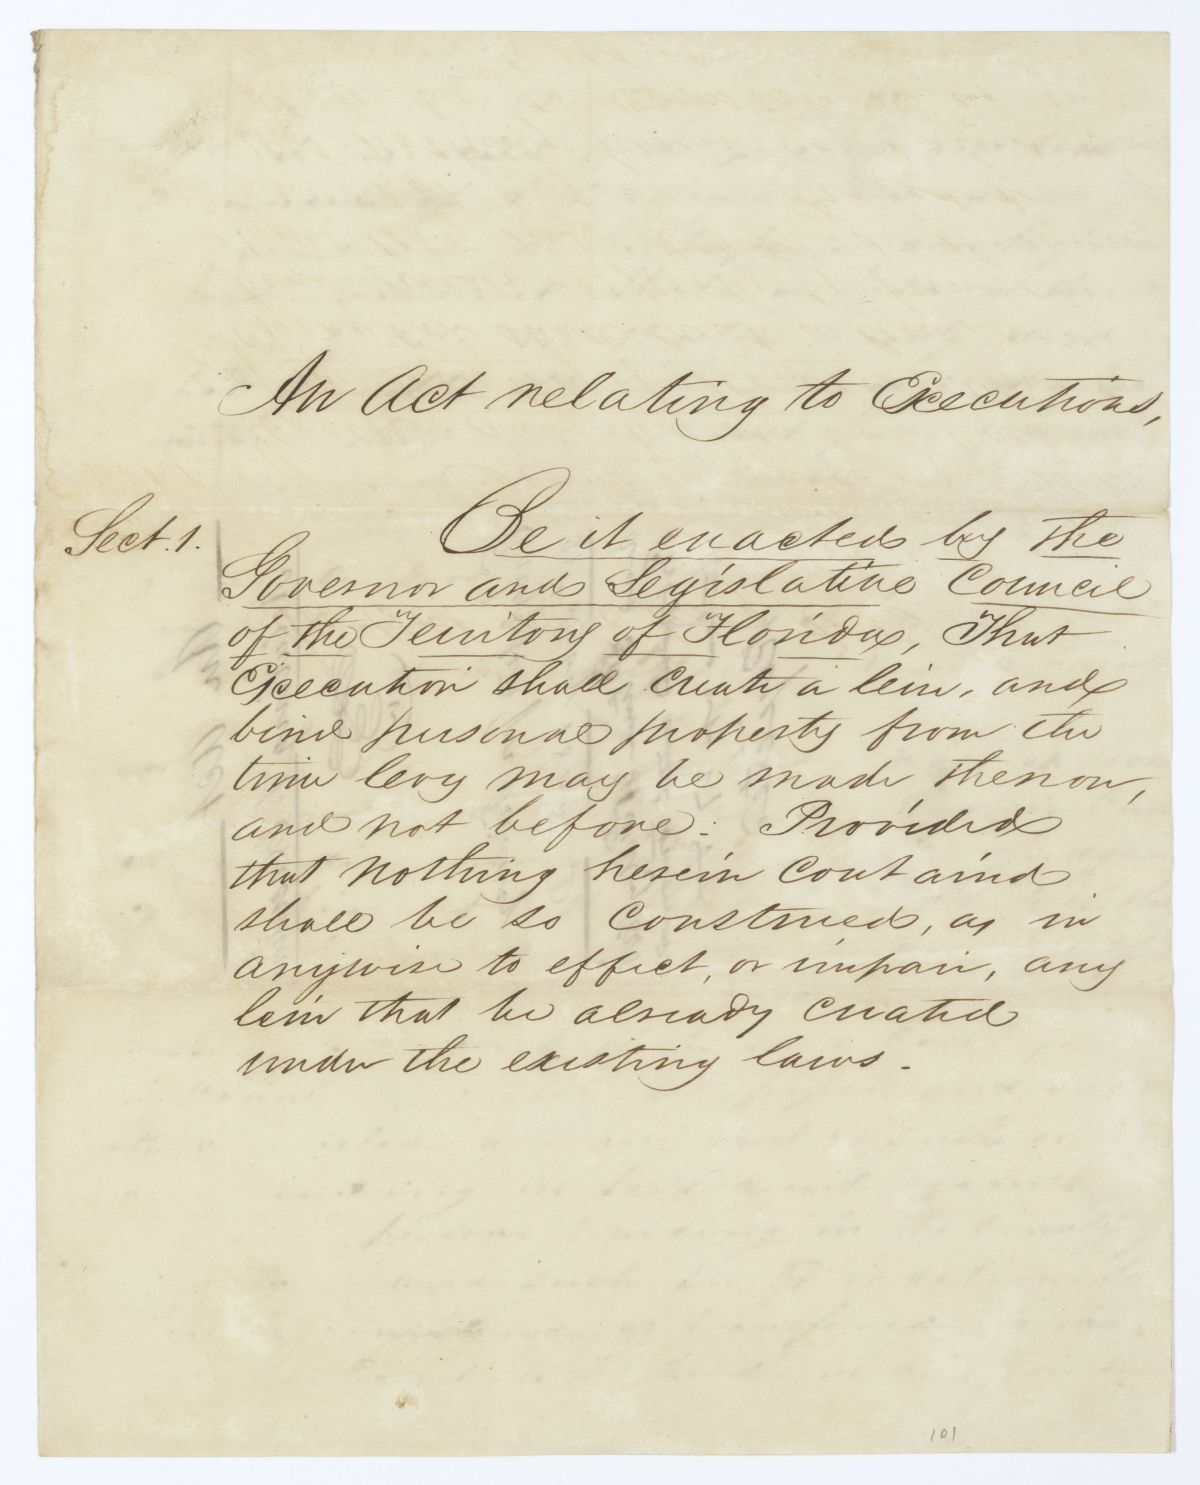 An Act relating to Executions,
Sect. 1. Be it enacted by the
Governor and Legislative Council
of the Territory of Florida, That
Execution shall create a lein, and
bind personal property from the
time levy may be made thereon,
and not before: Provided
that nothing herein containd
shall be so construed, as in
anywise to effect, or impair, any
lein that be already created
under the existing laws.
101